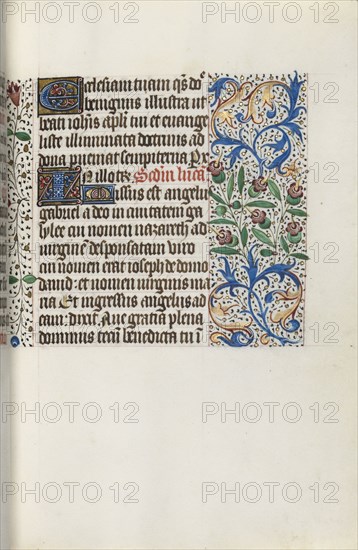 PHOTO 12 PHOTO 12 PHOTO 12
Ecclesiam tuam qs dñe
benignus illustra ut
beati iohis apli tui et euange
liste illuminata doctrinis ad
dona pueniat sempiterna P x
In illo tꝑe Scdm lucā
Missus est angelus
gabriel a deo in ciuitatem ga
lylee cui nomen nazareth ad
uirginē desponsatam uiro
cui nomen erat ioseph de domo
dauid: et nomen uirginis ma
ria Et ingressus angelus ad
eam: dixit. Aue gratia plena
dominus tecū benedicta tu i
PHOTO 12 PHOTO 12 PHOTO 12